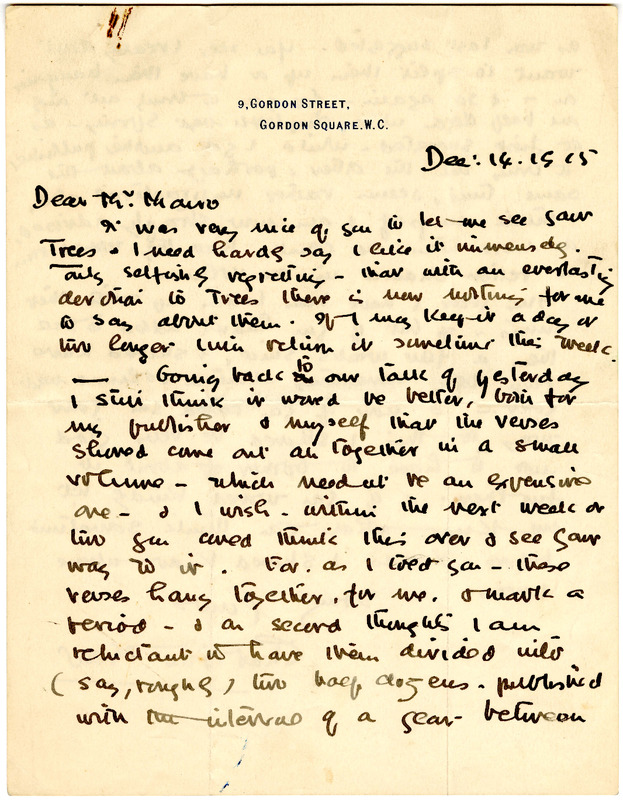 9, GORDON STREET,
GORDON SQUARE. W.C.
Dec: 14. 1915
Dear Mr. Monro
It was very nice of you to let me see your
Trees & I need hardly say I like it immensely.
Only selfishly regretting - that with an everlasting
devotion to Trees there is now nothing for me
to say about them. If I may keep it a day or
two longer I will return it sometime this week.
— Going back to our talk of yesterday
I still think it would be better, both for
my publisher & myself that the verses
should come out all together in a small
volume - which need not be an expensive
one - & I wish - within the next week or
two you could think this over & see your
way to it. For. as I told you - these
verses hang together. for me. & mark a
period - & on second thoughts I am
reluctant to have them divided into
(say, roughly) two half dozens - published
with the interval of a year between